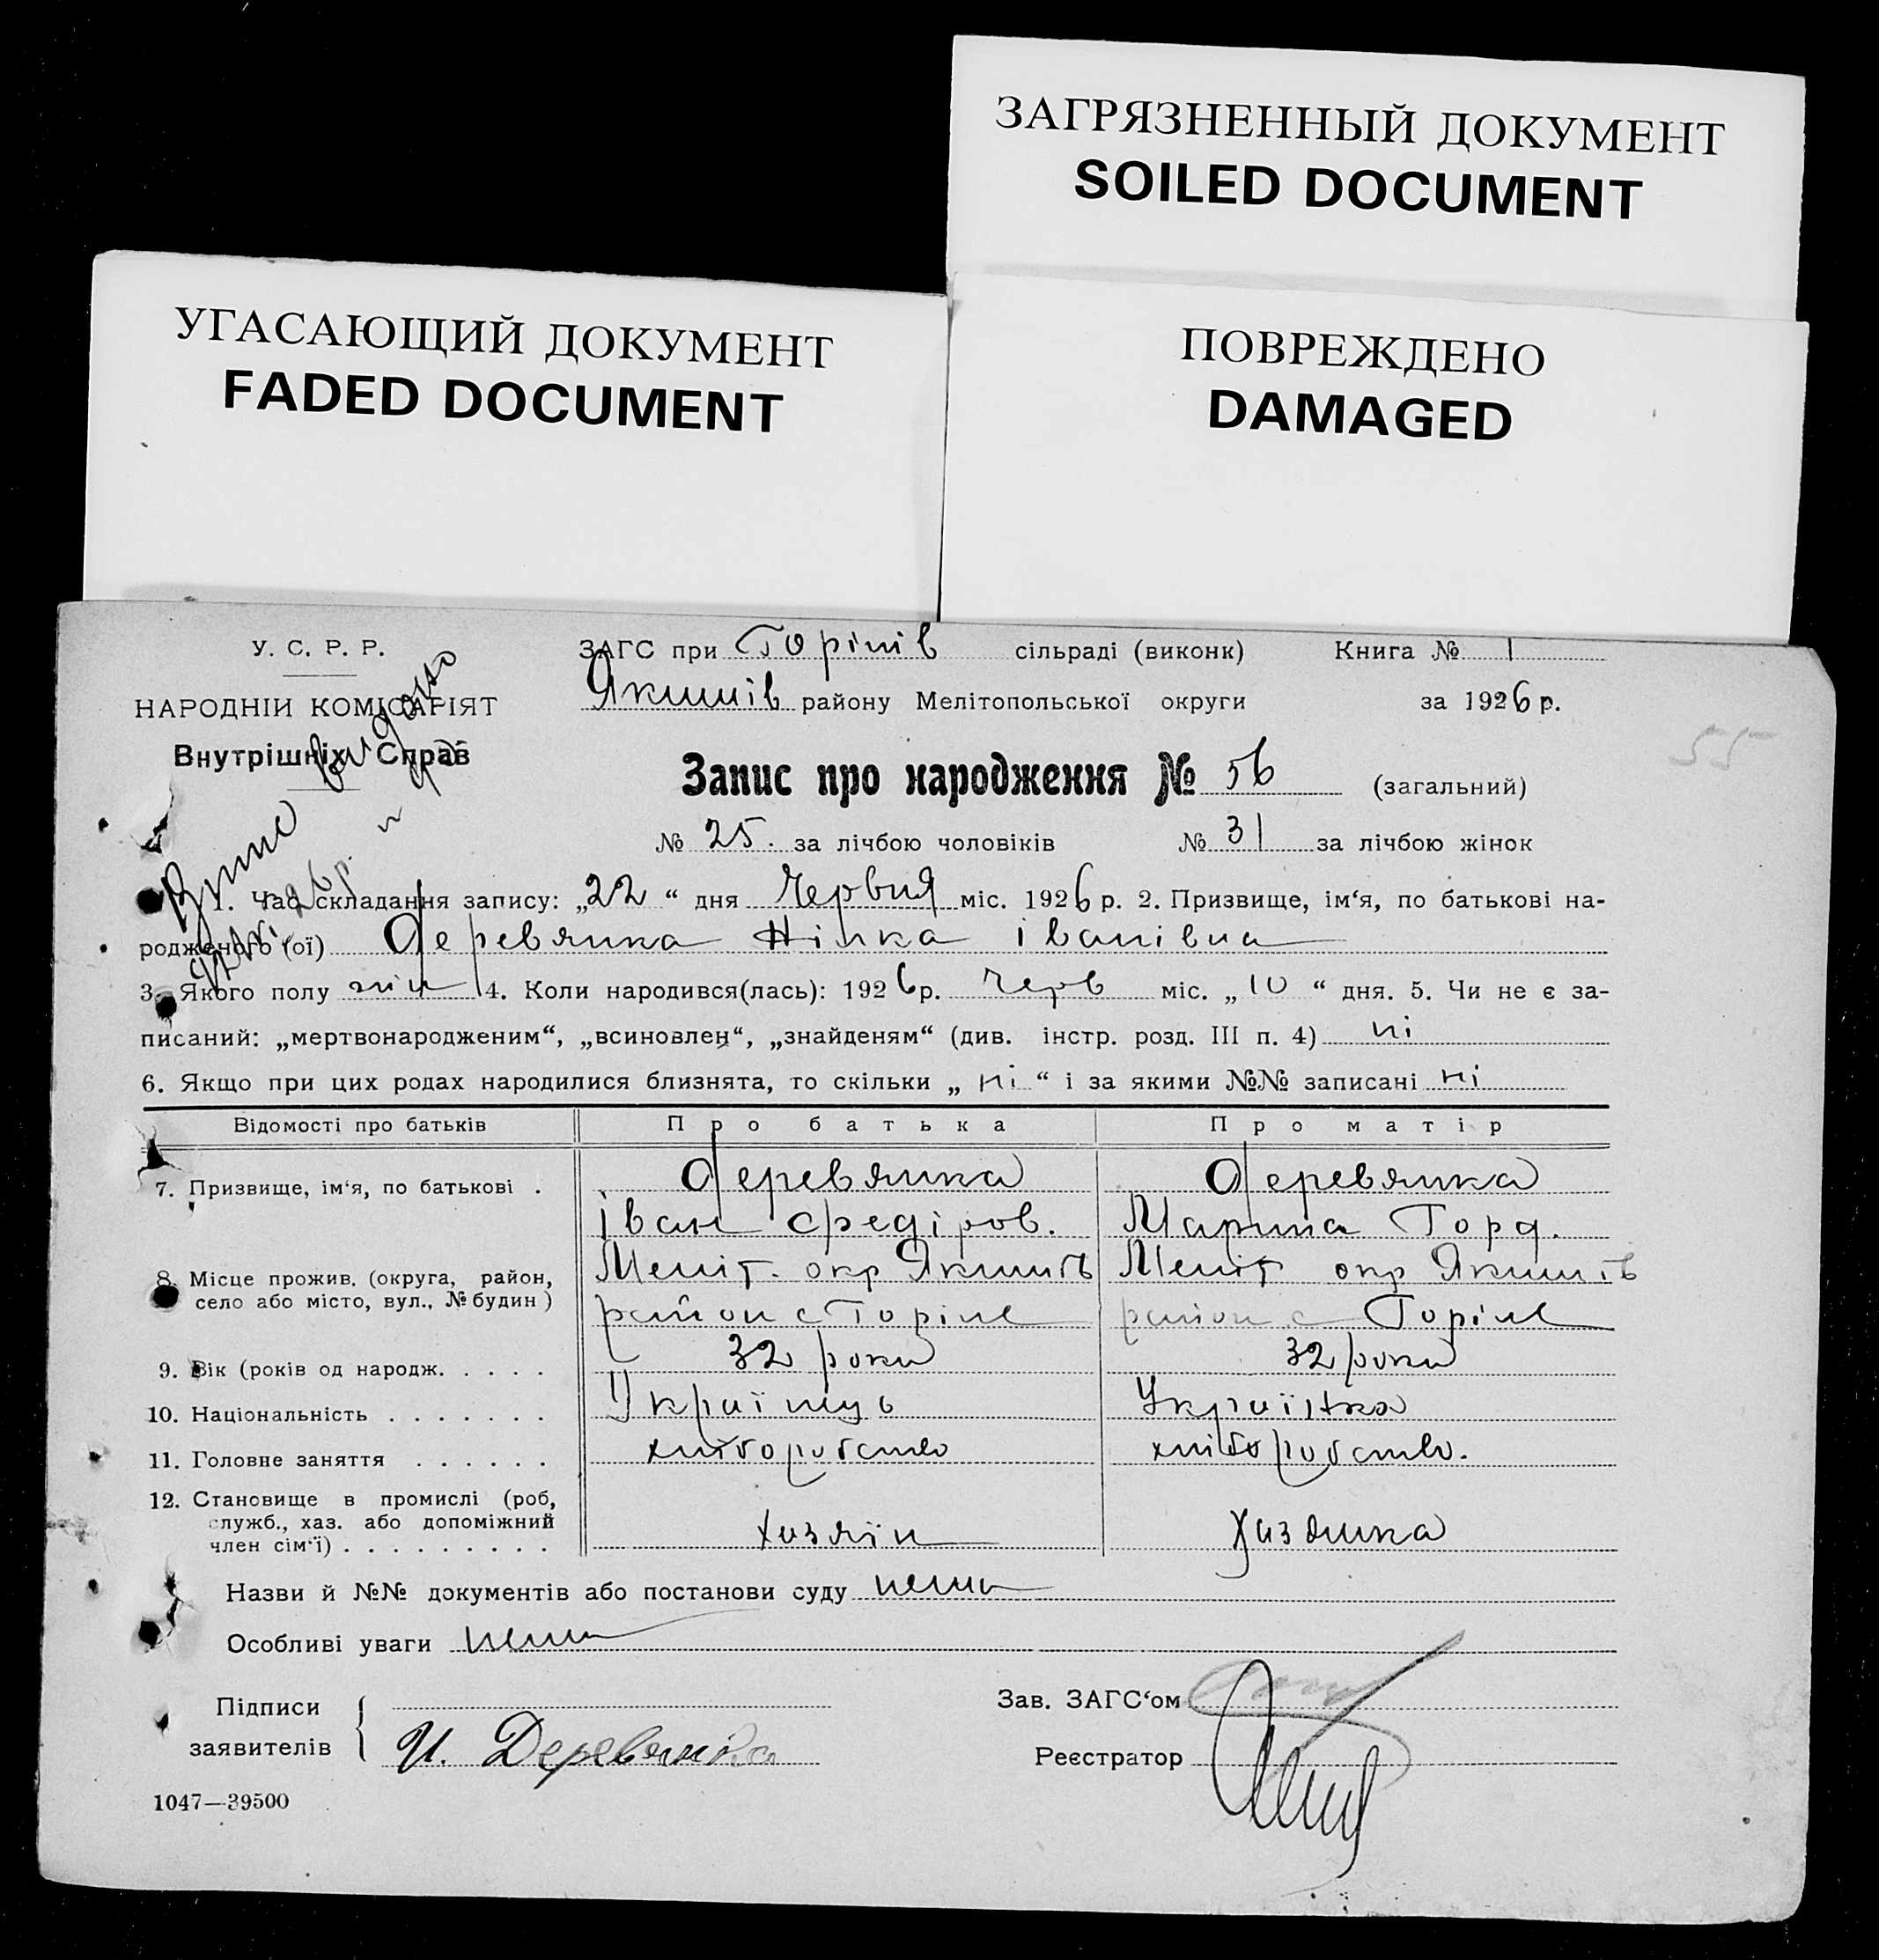 ЗАГРЯЗНЕННЫЙ ДОКУМЕНТ
SOILED DOCUMENT
УГАСАЮЩИЙ ДОКУМЕНТ
FADED DOCUMENT
ПОВРЕЖДЕНО
DAMAGED
У. С. Р. Р.
НАРОДНІЙ КОМІСАРІЯТ
Внутрішніх Справ
ЗАГС при Горілів сільраді (виконк) Книга № 1
Якимів району Мелітопольської округи за 1926 р.
55
Запис про народження № 56 (загальний)
№ 25. за лічбою чоловіків № 31 за лічбою жінок
1. Час складання запису: „22“ дня Червня міс. 1926 р. 2. Призвище, ім‘я, по батькові на-
родженого (ої) Деревянка Нінка Іванівна
3. Якого полу жін 4. Коли народився(лась): 1926 р. Черв міс. „10“ дня. 5. Чи не є за-
писаний: „мертвонародженим“, „всиновлен“, „знайденям“ (див. інстр. розд. III п. 4) ні
6. Якщо при цих родах народилися близнята, то скільки „ні“ і за якими №№ записані ні
Відомості про батьків Про батька Про матір
7. Призвище, ім‘я, по батькові . Деревянка Деревянка
Іван Федіров. Марина Горд.
8. Місце прожив. (округа, район, Меліт. окр Якимів Меліт окр Якимів
село або місто, вул., № будин) район с Горіле район с Горіле
9. Вік (років од народж. . . . . 32 роки 32 роки
10. Національність . . . . . . . Українець Українка
11. Головне заняття . . . . . . хліборобство хліборобство.
12. Становище в промислі (роб,
служб., хаз. або допоміжний
член сім‘ї) . . . . . . . . . хазяїн Хазяйка
Назви й №№ документів або постанови суду нема
Особливі уваги нема
Підписи Зав. ЗАГС‘ом
заявителів И. Деревянко Реєстратор
1047—39500